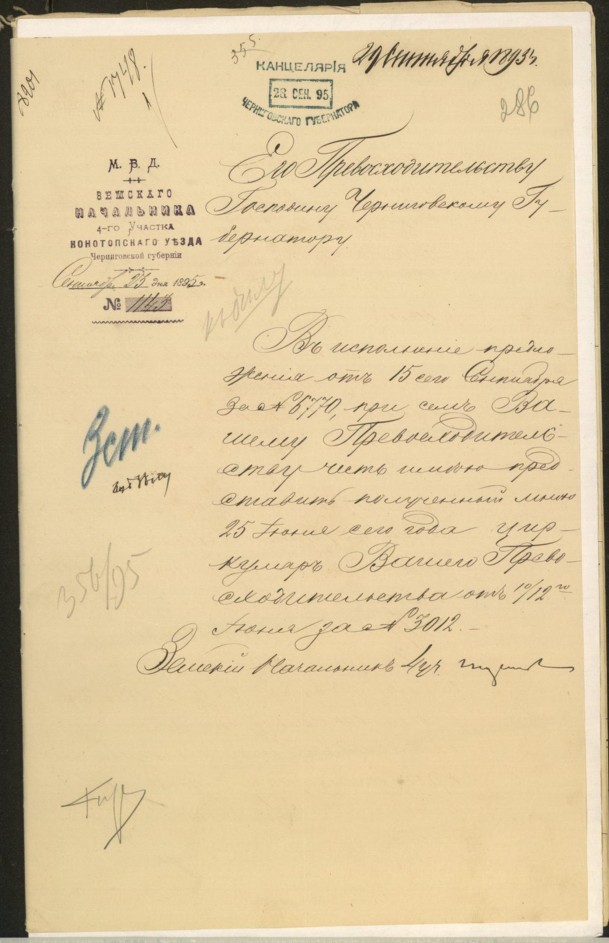 355.
№ 1748.
КАНЦЕЛЯРІЯ
28 СЕН. 95
ЧЕРНИГОВСКАГО ГУБЕРНАТОРА
29 Сентября 1895 г.
286
М. В. Д.
ЗЕМСКАГО
НАЧАЛЬНИКА
4-го Участка
КОНОТОПСКАГО УѢЗДА
Черниговской губерніи
Сентябр. 23 дня 1895 г.
№ 1142
Его Превосходительству
Господину Черниговскому Гу-
бернатору
къ дѣлу
Въ исполненіе предло-
женія отъ 15 сего Сентября
за № 6770, при семъ Ва-
шему Превосходитель-
ству честь имѣю пред-
ставить полученный мною
25 Іюня сего года цир-
куляръ Вашего Прево-
сходительства отъ 10/12 го
Іюня за № 3012.
Земскій Начальникъ 4 уч.
3 ст.
356/95